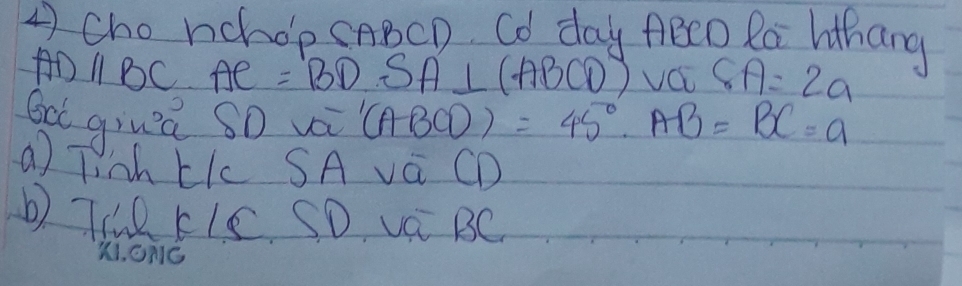 4) Cho hchóp SABCD. Có đáy ABCD là hthang
AD // BC AC = BD. SA ⊥ (ABCD) và SA = 2a
Góc giữa SD và (ABCD) = 45°. AB = BC = a
a) Tính k/c SA và CD
b) Tính k/c SD và BC
KLONG